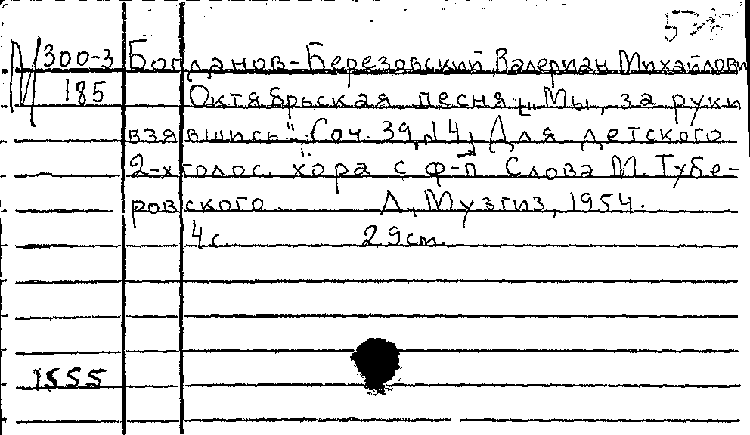 М 300-3 Богданов-Березовский, Валериан Михайлович
185 Октябрьская песня: "Мы, за руки
взявшись". Соч. 39, №4, Для детского
2-хголос. хора с ф-п Слова М. Тубе-
ровского. Л, Музгиз, 1954.
4 с. 29 cm.
1555